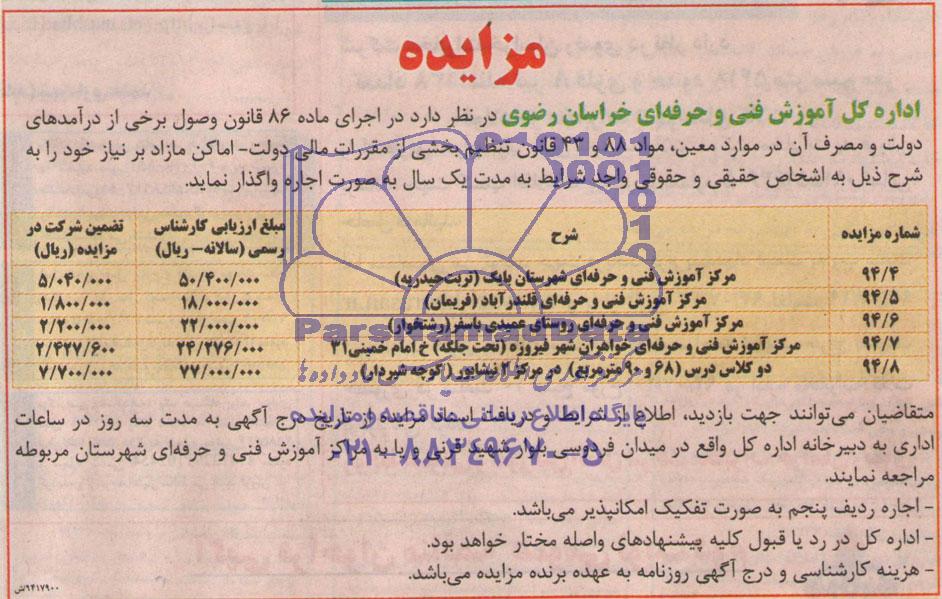 مزایده
اداره کل آموزش فنی و حرفه‌ای خراسان رضوی در نظر دارد در اجرای ماده ۸۶ قانون وصول برخی از درآمدهای
دولت و مصرف آن در موارد معین، مواد ۸۸ و ۴۳ قانون تنظیم بخشی از مقررات مالی دولت- اماکن مازاد بر نیاز خود را به
شرح ذیل به اشخاص حقیقی و حقوقی واجد شرایط به مدت یک سال به صورت اجاره واگذار نماید.
شماره مزایده شرح مبلغ ارزیابی کارشناس رسمی (سالانه- ریال) تضمین شرکت در مزایده (ریال)
۹۴/۴ مرکز آموزش فنی و حرفه‌ای شهرستان بایک (تربت‌حیدریه) ۵۰/۴۰۰/۰۰۰ ۵/۰۴۰/۰۰۰
۹۴/۵ مرکز آموزش فنی و حرفه‌ای قلندرآباد (فریمان) ۱۸/۰۰۰/۰۰۰ ۱/۸۰۰/۰۰۰
۹۴/۶ مرکز آموزش فنی و حرفه‌ای روستای عمیدی باسفر(رشتخوار) ۲۲/۰۰۰/۰۰۰ ۲/۲۰۰/۰۰۰
۹۴/۷ مرکز آموزش فنی و حرفه‌ای خواهران شهر فیروزه (تحت جلگه) خ امام خمینی۳۱ ۲۴/۲۷۶/۰۰۰ ۲/۴۲۷/۶۰۰
۹۴/۸ دو کلاس درس (۶۸ و ۹۰مترمربع) در مرکز ۲ نیشابور (کوچه شیردار) ۷۷/۰۰۰/۰۰۰ ۷/۷۰۰/۰۰۰
متقاضیان می‌توانند جهت بازدید، اطلاع از شرایط و دریافت اسناد مزایده از تاریخ درج آگهی به مدت سه روز در ساعات
اداری به دبیرخانه اداره کل واقع در میدان فردوسی بلوار شهید قرنی و یا به مراکز آموزش فنی و حرفه‌ای شهرستان مربوطه
مراجعه نمایند.
- اجاره ردیف پنجم به صورت تفکیک امکانپذیر می‌باشد.
- اداره کل در رد یا قبول کلیه پیشنهادهای واصله مختار خواهد بود.
- هزینه کارشناسی و درج آگهی روزنامه به عهده برنده مزایده می‌باشد.
۹۴۱۷۹۰۰/ش
پایگاه اطلاع رسانی مناقصه و مزایده
۰۲۱-۸۸۳۴۹۶۷۰-۵